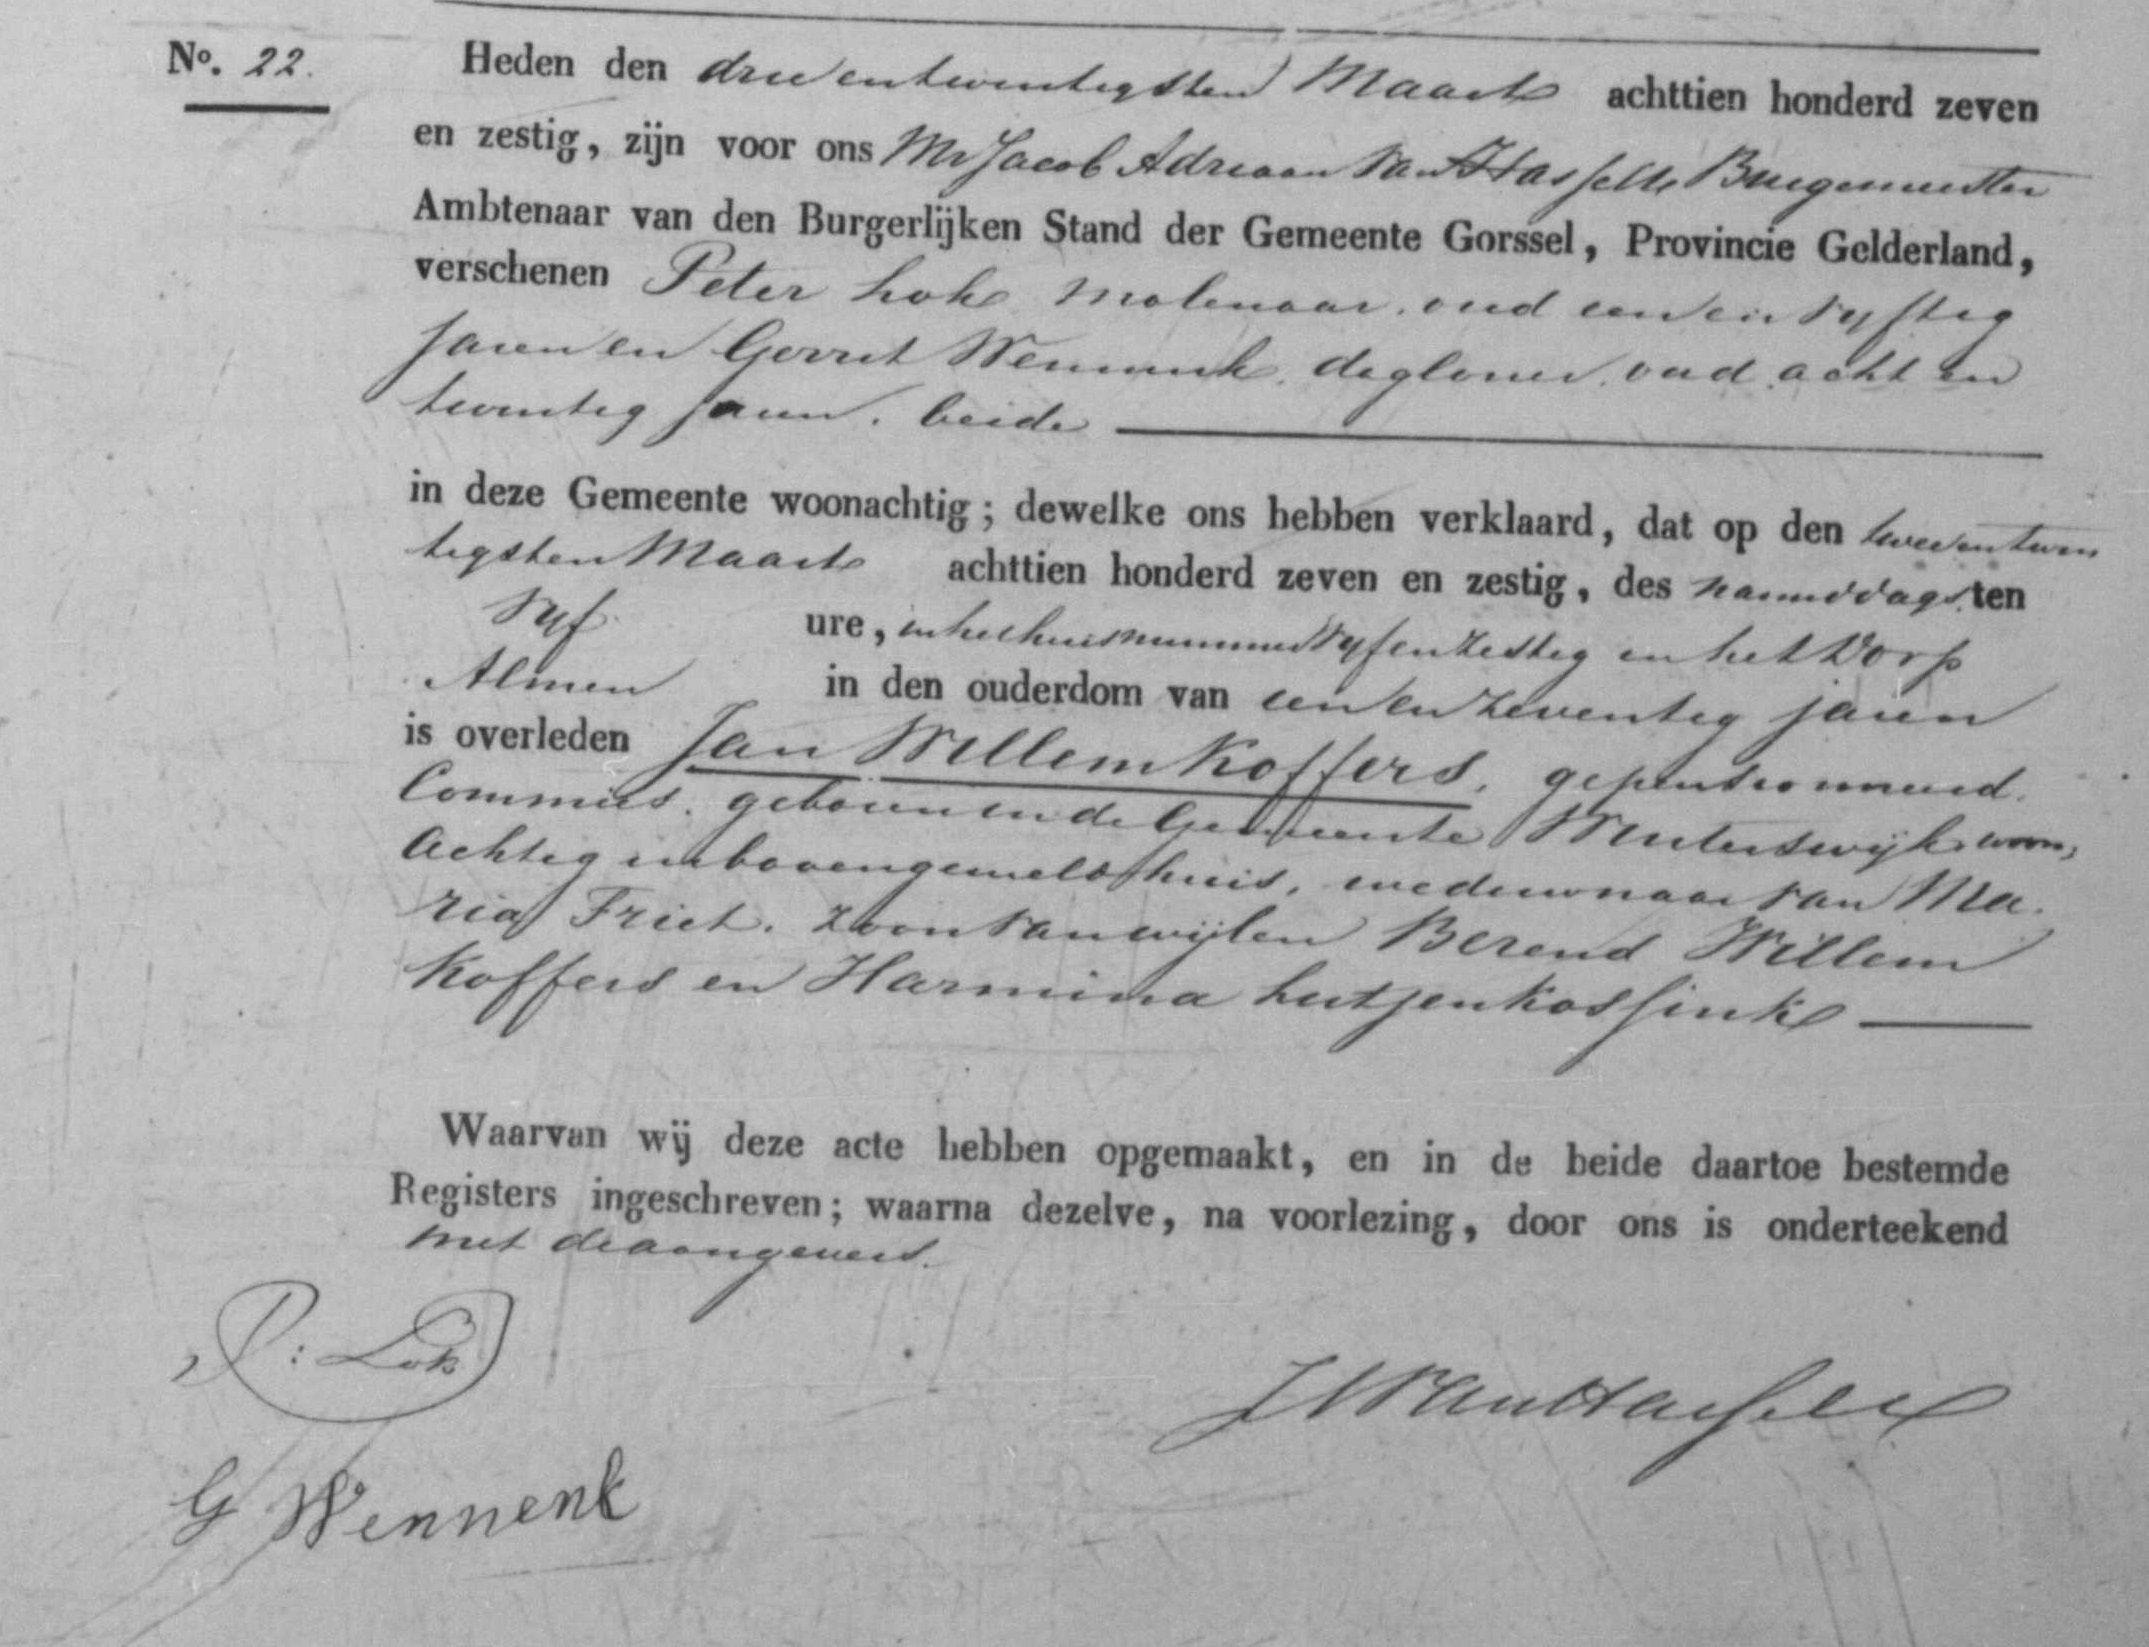 No. 22.
Heden den drie en twintigsten Maart achttien honderd zeven
en zestig, zijn voor ons Mr Jacob Adriaan van Hasselt Burgemeester
Ambtenaar van den Burgerlijken Stand der Gemeente Gorssel, Provincie Gelderland,
verschenen Peter Lok molenaar, oud een en vyftig
jaren en Gerrit Wennink, daglooner, oud acht en
twintig jaren, beide
in deze Gemeente woonachtig; dewelke ons hebben verklaard, dat op den twee en twin
tigsten Maart achttien honderd zeven en zestig, des namiddags ten
vyf ure, in het huis nummer vyf en zestig in het Dorp
Almen in den ouderdom van een en zeventig jaren
is overleden Jan Willem Koffers, gepensionneerd
Commies, geboren in de Gemeente Winterswijk woon,
achtig in bovengemeld huis, weduwnaar van Ma.
ria Friet. zoon van wijlen Berend Willem
Koffers en Harmina Lutjenkossink
Waarvan wij deze acte hebben opgemaakt, en in de beide daartoe bestemde
Registers ingeschreven; waarna dezelve, na voorlezing, door ons is onderteekend
met de aangevers.
P: Lok
JAVanHasselt
G Wennenk